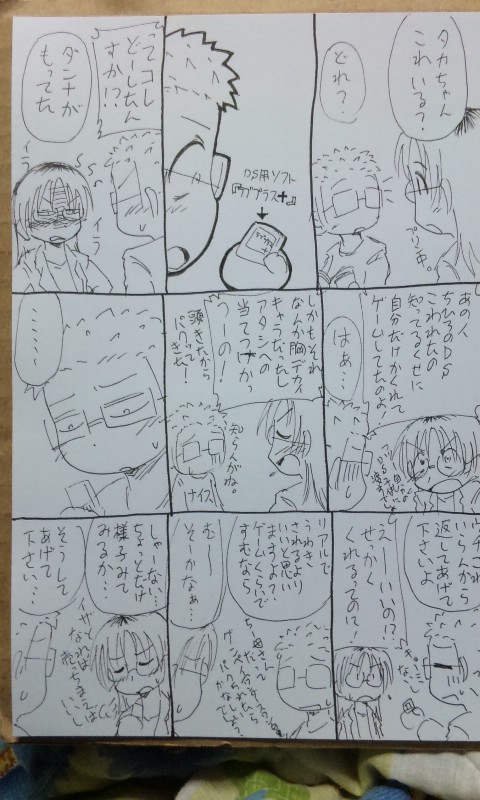 タカちゃん
これいる?
どれ?
プリキュア中。
DS用ソフト
『ラブプラス+』
ってコレ
どーしたん
すか!?
ダンナが
もってた
イラ
イラ
あの人
ちひろのDS
こわれたの
知ってるくせに
自分だけかくれて
ゲームしてたのよ!
はぁ…
しかもそれ
なんか胸デカい
キャラだったし
アタシへの
当てつけかっ
つーの!
頭きたから
パクってきた!
知らんがね。
けイス
……!
ウチこれ
いらんから
返してあげて
下さいよ
えーいいの!?
せっかく
くれるってのに!
リアルで
うわき
されるより
いいと思い
ますよ?
ゲームくらいで
すむなら
むー
そーかなぁ…
しゃーない、
ちょっとだけ
様子みて
みるか…
そうして
あげて
下さい…
イザと
なれば
売っちまえば
いいし